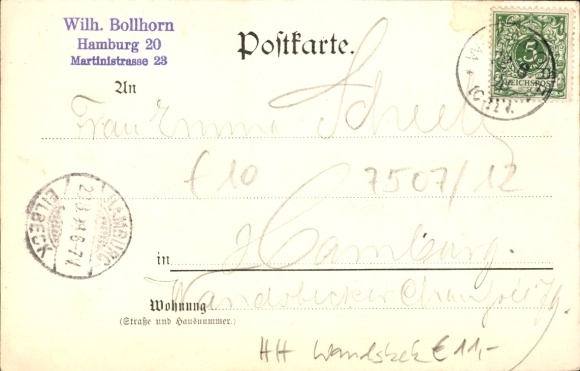 Wilh. Bollhorn
Hamburg 20
Martinistrasse 23
Postkarte.
5
REICHSPOST
An
Frau Emma Scheel
€ 10 7507/12
HAMBURG
EILBECK
in Hamburg.
Wohnung
(Straße und Hausnummer.)
Wandsbecker Chaussee
HH Wandsbek € 11,-